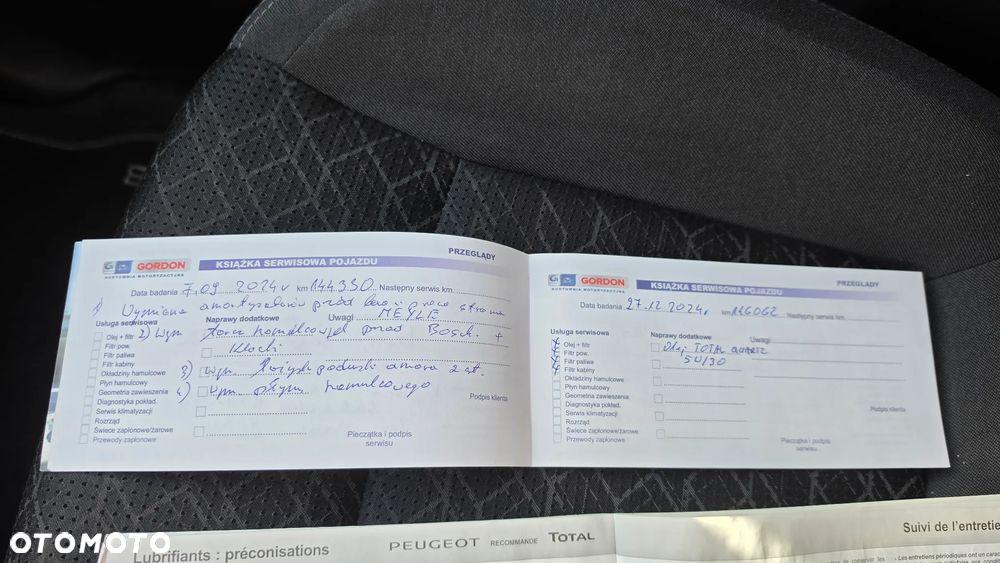 GORDON
HURTOWNIA MOTORYZACYJNA
KSIĄŻKA SERWISOWA POJAZDU
PRZEGLĄDY
Data badania 7.09 2024r km 144330 Następny serwis km
1) Wymiana amortyzatorów przód lewa i prawa strona
Usługa serwisowa
Naprawy dodatkowe
Uwagi MEYLE
2) Wym tarcz hamulcowych przód Bosch +
klocki
3) Wym. łożysk poduszki amora 2 szt.
4) Wym płynu hamulcowego
Olej + filtr
Filtr pow.
Filtr paliwa
Filtr kabiny
Okładziny hamulcowe
Płyn hamulcowy
Geometria zawieszenia
Diagnostyka pokład.
Serwis klimatyzacji
Rozrząd
Świece zapłonowe/żarowe
Przewody zapłonowe
Podpis klienta
Pieczątka i podpis
serwisu
GORDON
HURTOWNIA MOTORYZACYJNA
KSIĄŻKA SERWISOWA POJAZDU
PRZEGLĄDY
Data badania 27.12 2024r km 146062 Następny serwis km
Usługa serwisowa
Naprawy dodatkowe
Uwagi
Olej TOTAL QUARTZ
5W/30
Olej + filtr
Filtr pow.
Filtr paliwa
Filtr kabiny
Okładziny hamulcowe
Płyn hamulcowy
Geometria zawieszenia
Diagnostyka pokład.
Serwis klimatyzacji
Rozrząd
Świece zapłonowe/żarowe
Przewody zapłonowe
Podpis klienta
Pieczątka i podpis
serwisu
Lubrifiants : préconisations
PEUGEOT RECOMMANDE TOTAL
Suivi de l'entretie
- Les entretiens périodiques ont un carac
OTOMOTO